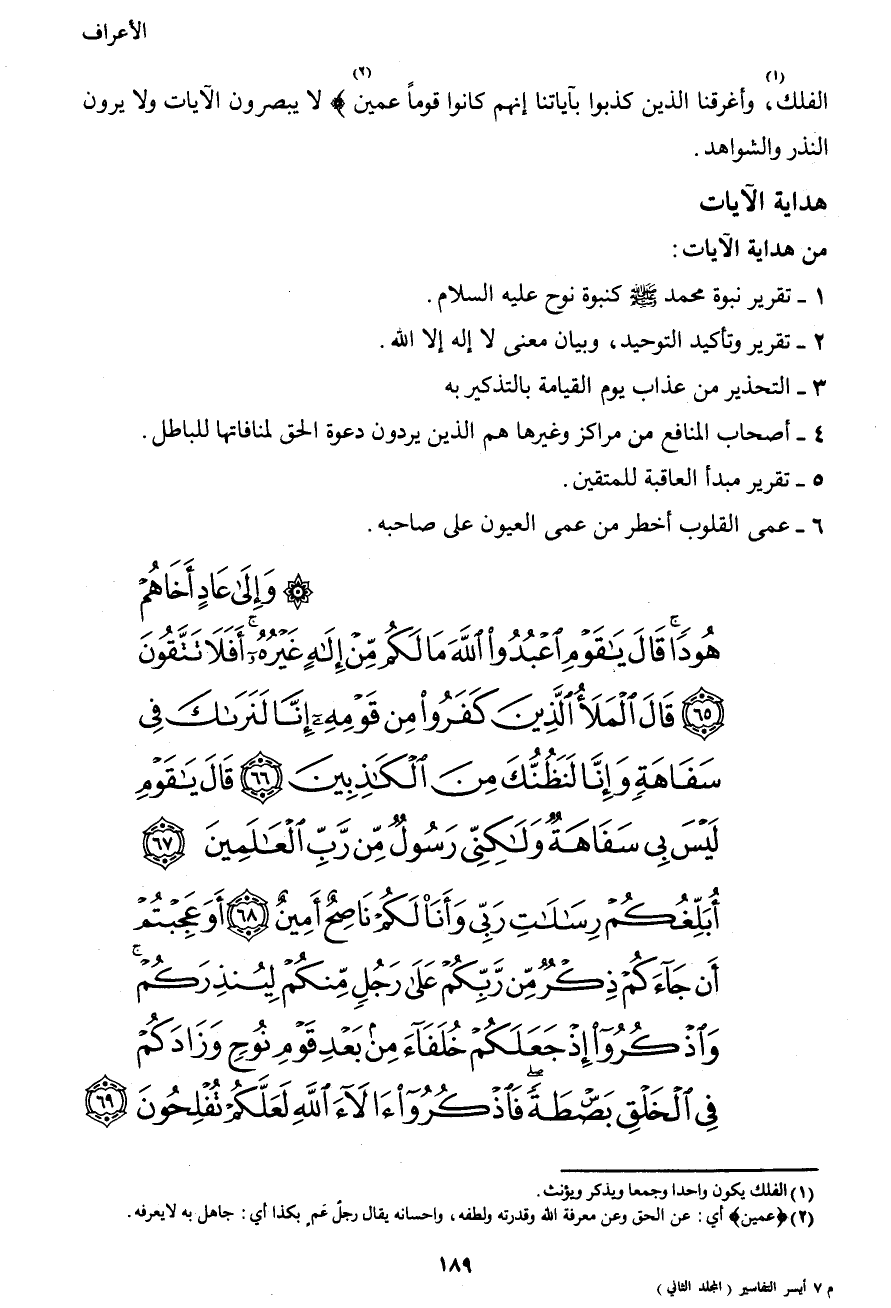 الأعراف
الفلك(١)، وأغرقنا الذين كذبوا بآياتنا إنهم كانوا قوماً عمين(٢) ﴾ لا يبصرون الآيات ولا يرون
النذر والشواهد .
هداية الآيات
من هداية الآيات :
١ ـ تقرير نبوة محمد ﷺ كنبوة نوح عليه السلام .
٢ ـ تقرير وتأكيد التوحيد، وبيان معنى لا إله إلا الله .
٣ ـ التحذير من عذاب يوم القيامة بالتذكير به
٤ ـ أصحاب المنافع من مراكز وغيرها هم الذين يردون دعوة الحق لمنافاتها للباطل .
٥ ـ تقرير مبدأ العاقبة للمتقين .
٦ ـ عمى القلوب أخطر من عمى العيون على صاحبه .
۞ وَإِلَىٰ عَادٍ أَخَاهُمۡ
هُودٗاۚ قَالَ يَٰقَوۡمِ ٱعۡبُدُواْ ٱللَّهَ مَا لَكُم مِّنۡ إِلَٰهٍ غَيۡرُهُۥٓۚ أَفَلَا تَتَّقُونَ
٦٥ قَالَ ٱلۡمَلَأُ ٱلَّذِينَ كَفَرُواْ مِن قَوۡمِهِۦٓ إِنَّا لَنَرَىٰكَ فِي
سَفَاهَةٖ وَإِنَّا لَنَظُنُّكَ مِنَ ٱلۡكَٰذِبِينَ ٦٦ قَالَ يَٰقَوۡمِ
لَيۡسَ بِي سَفَاهَةٞ وَلَٰكِنِّي رَسُولٞ مِّن رَّبِّ ٱلۡعَٰلَمِينَ ٦٧
أُبَلِّغُكُمۡ رِسَٰلَٰتِ رَبِّي وَأَنَا۠ لَكُمۡ نَاصِحٌ أَمِينٌ ٦٨ أَوَعَجِبۡتُمۡ
أَن جَآءَكُمۡ ذِكۡرٞ مِّن رَّبِّكُمۡ عَلَىٰ رَجُلٖ مِّنكُمۡ لِيُنذِرَكُمۡۚ
وَٱذۡكُرُوٓاْ إِذۡ جَعَلَكُمۡ خُلَفَآءَ مِنۢ بَعۡدِ قَوۡمِ نُوحٖ وَزَادَكُمۡ
فِي ٱلۡخَلۡقِ بَصۜۡطَةٗۖ فَٱذۡكُرُوٓاْ ءَالَآءَ ٱللَّهِ لَعَلَّكُمۡ تُفۡلِحُونَ ٦٩
(١) الفلك يكون واحدا وجمعا ويذكر ويؤنث .
(٢) ﴿عمين﴾ أي : عن الحق وعن معرفة الله وقدرته ولطفه، واحسانه يقال رجلٌ عَمٍ بكذا أي : جاهل به لايعرفه .
١٨٩
م ٧ أيسر التفاسير ( المجلد الثاني )